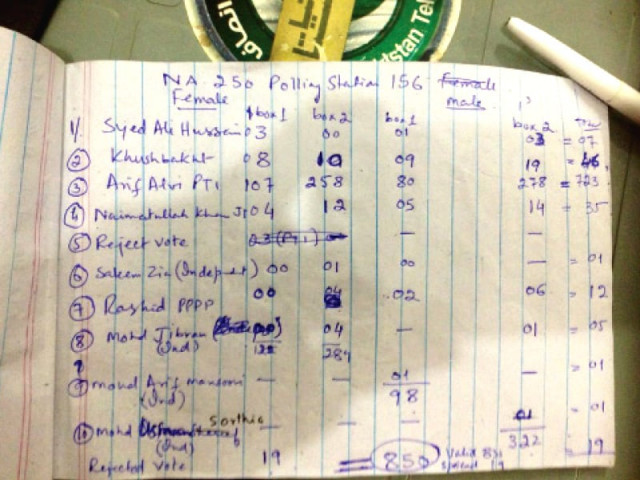 انصاف
kistan Teh
NA-250 Polling Station 156 Female
Female male
box 1 box 2 box 1 box 2
1/ Syed Ali Hussein 03 00 01 03 = 07
2 Khushbakht 08 10 09 19 = 46
3 Arif Alvi PTI 107 258 80 278 = 723
4 Naimatullah Khan JI 04 12 05 14 = 35
5 Reject vote — —
6 Saleem Zia (Indepnet) 00 01 00 — = 01
7 Rashid PPPP 00 04 02 06 = 12
8 Mohd Jibran 04 — 01 = 05
(Ind) 122 284
9 Mohd Arif mansoori — — 01 — = 01
(Ind) 98
10 Mohd Sorthia — — 01 = 01
(Ind) 322
Rejected vote 19 = 850 Valid 831 19